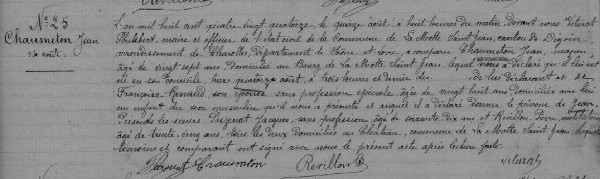 N° 25
Chaumeton Jean
14 août.
L'an mil huit cent quatre-vingt quatorze, le quinze août, à huit heures du matin, devant nous
Philibert, maire et officier de l'état civil de la Commune de La Motte Saint Jean, canton de Digoin,
arrondissement de Charolles, Département de Saône et Loire, a comparu Chaumeton Jean, maçon,
âgé de vingt sept ans, domicilié au Bourg de La Motte Saint Jean, lequel nous a déclaré qu'il lui est
né en son domicile, hier quatorze août, à trois heures et demie du de lui déclarant et de
Françoise Renaud son épouse, sans profession spéciale, âgée de vingt huit ans, domiciliée avec lui
un enfant du sexe masculin qu'il nous a présenté et auquel il a déclaré donner le prénom de Jean.
Présents les sieurs Jacques, sans profession, âgé de soixante dix ans et Révillon Pierre, instituteur
âgé de trente cinq ans, tous les deux domiciliés au Château, commune de La Motte Saint Jean, lesquels
témoins et comparant ont signé avec nous le présent acte après lecture faite.
Chaumeton Révillon